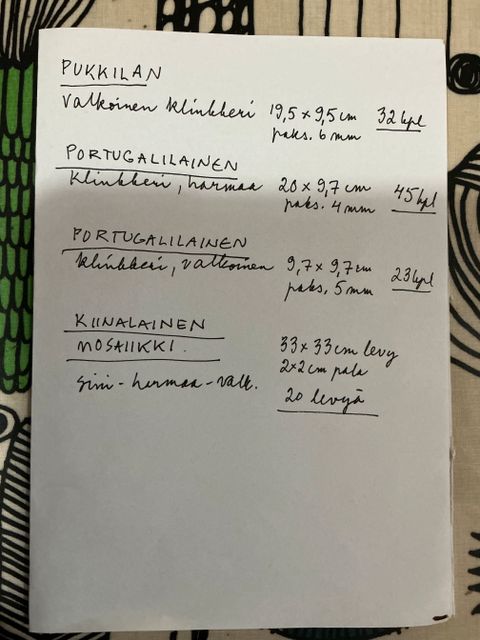 PUKKILAN
valkoinen klinkkeri 19,5 x 9,5 cm 32 kpl
paks. 6 mm
PORTUGALILAINEN
klinkkeri, harmaa 20 x 9,7 cm 45 kpl
paks. 4 mm
PORTUGALILAINEN
klinkkeri, valkoinen 9,7 x 9,7 cm 23 kpl
paks. 5 mm
KIINALAINEN
MOSAIIKKI. 33 x 33 cm levy
2x2 cm pala
sini-harmaa-valk. 20 levyä